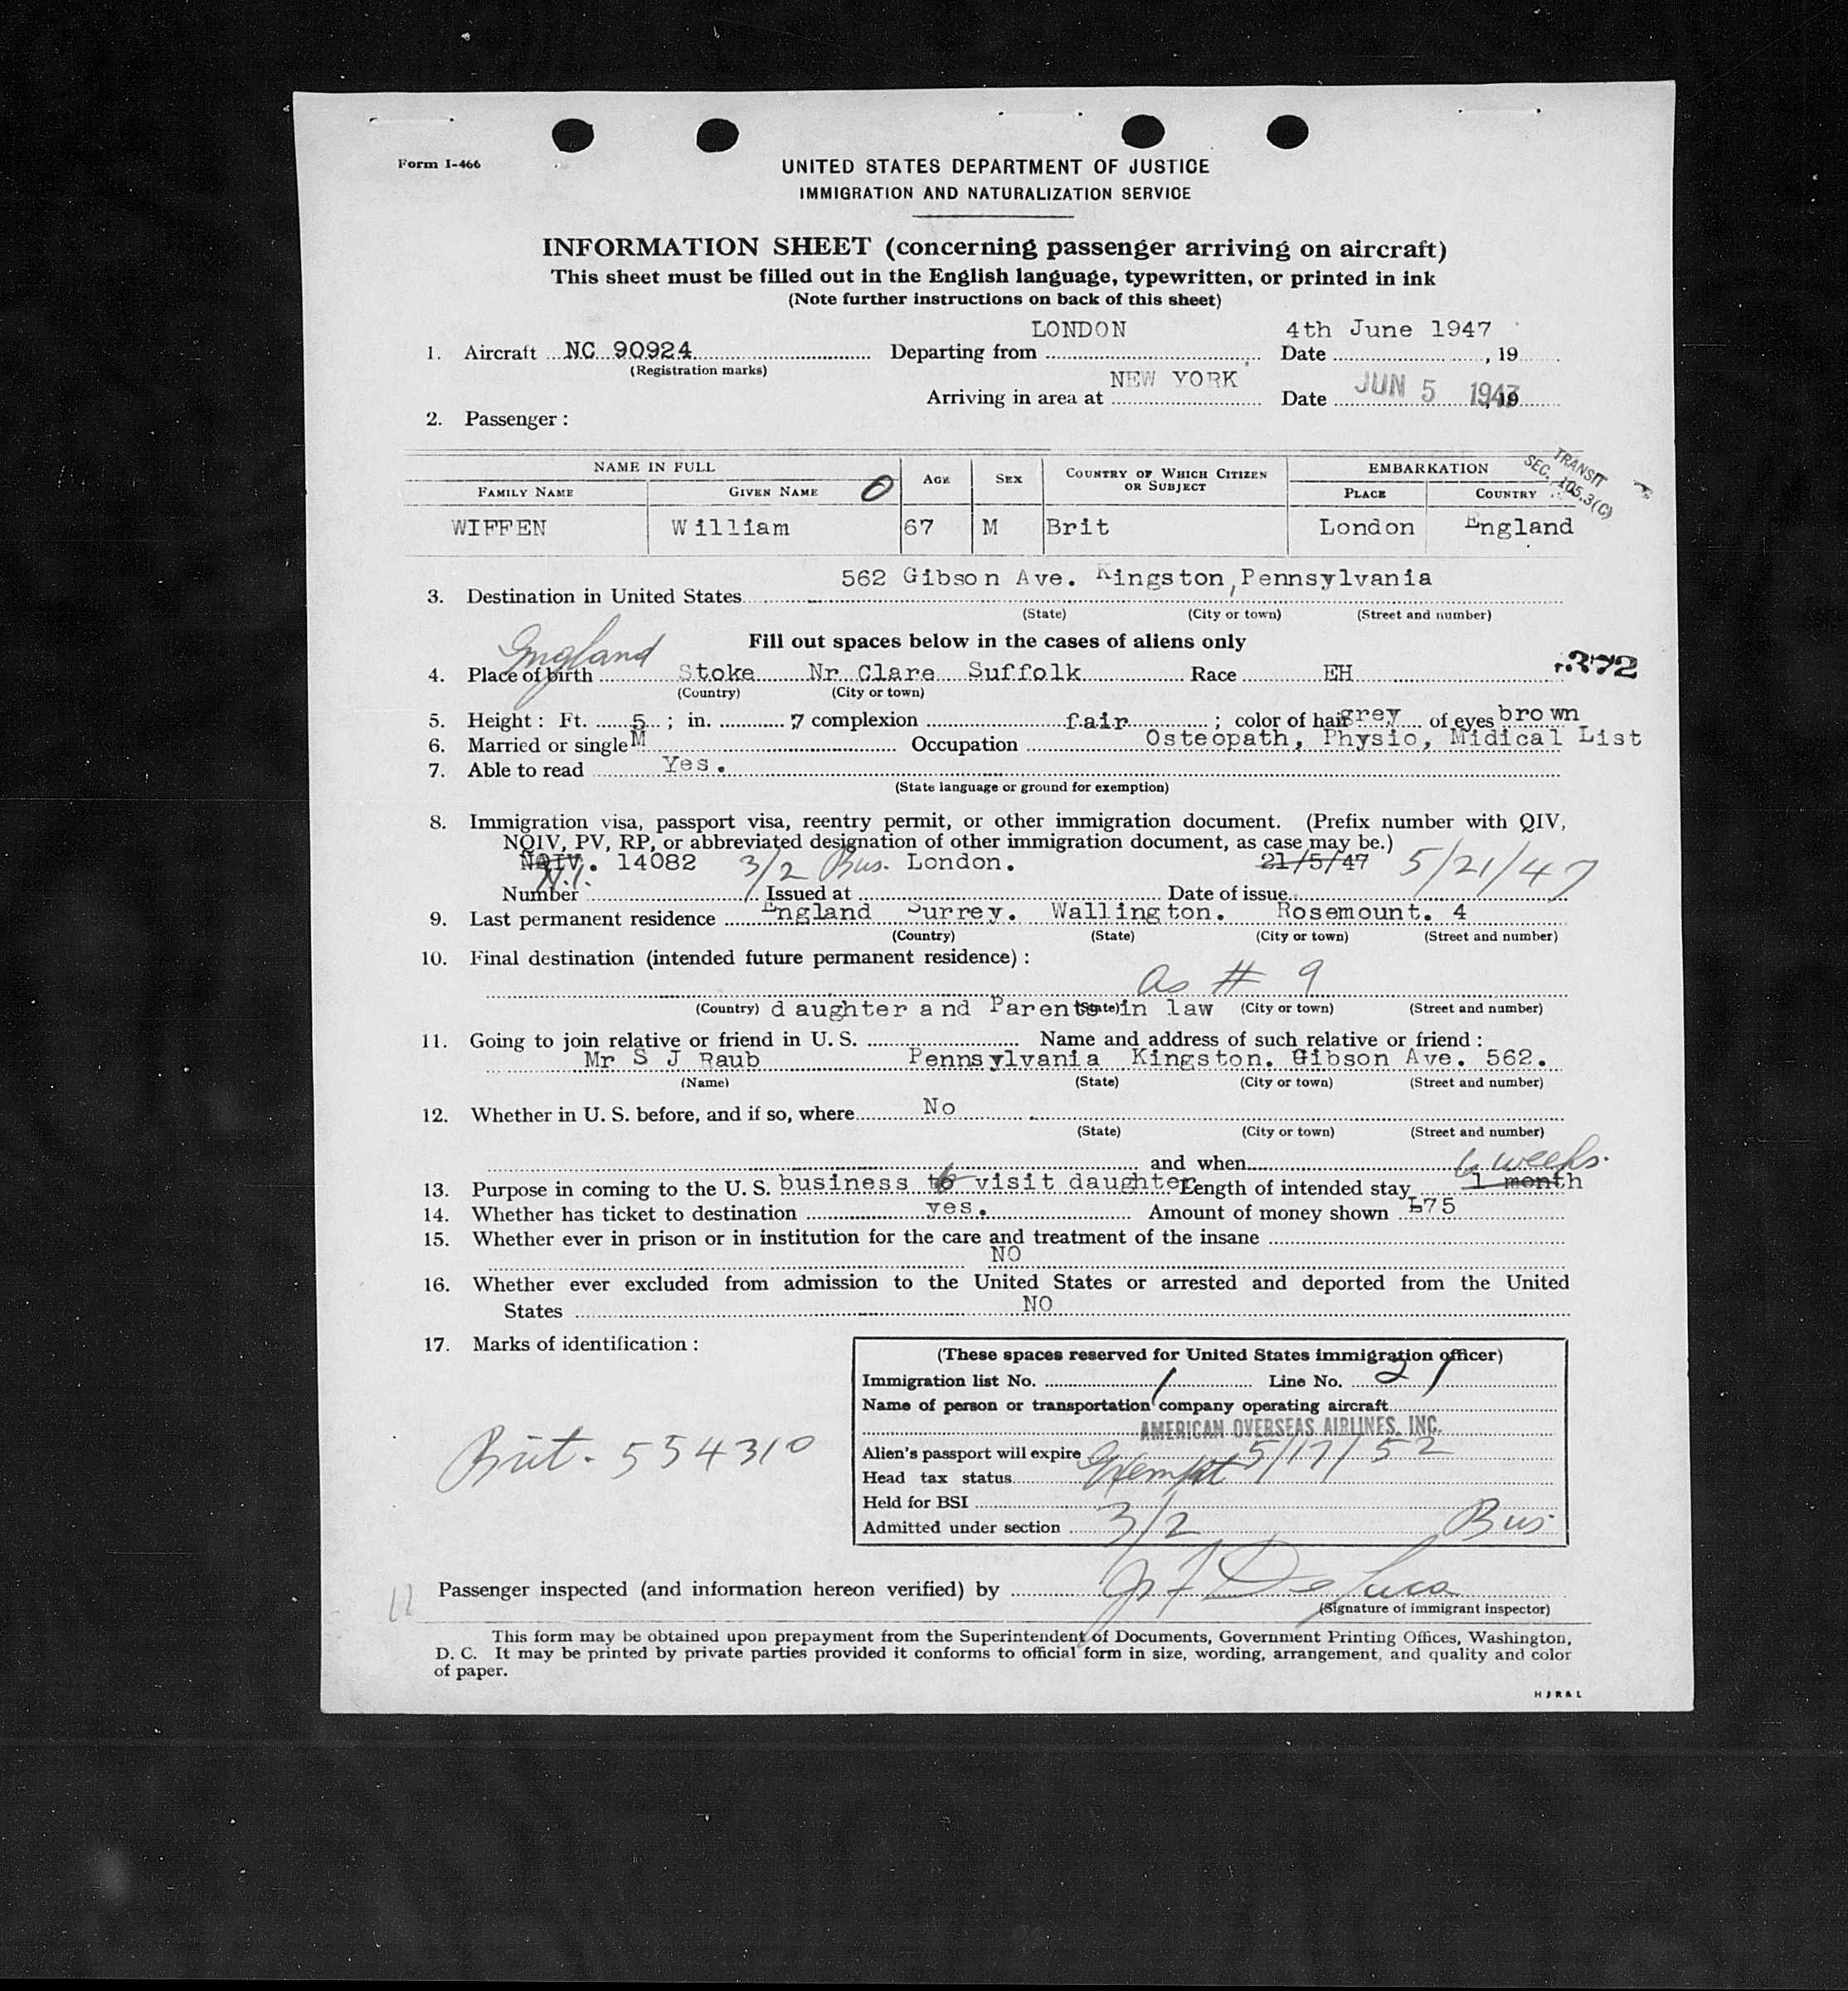 Form I-466
UNITED STATES DEPARTMENT OF JUSTICE
IMMIGRATION AND NATURALIZATION SERVICE
INFORMATION SHEET (concerning passenger arriving on aircraft)
This sheet must be filled out in the English language, typewritten, or printed in ink
(Note further instructions on back of this sheet)
LONDON 4th June 1947
1. Aircraft NC 90924 Departing from Date , 19
(Registration marks)
NEW YORK
Arriving in area at Date JUN 5 1947, 19
2. Passenger :
NAME IN FULL AGE SEX COUNTRY OF WHICH CITIZEN OR SUBJECT EMBARKATION TRANSIT SEC. 105.3(C)
FAMILY NAME GIVEN NAME 0 PLACE COUNTRY
WIFFEN William 67 M Brit London England
562 Gibson Ave. Kingston, Pennsylvania
3. Destination in United States
(State) (City or town) (Street and number)
Fill out spaces below in the cases of aliens only
England
372
4. Place of birth Stoke Nr Clare Suffolk Race EH
(Country) (City or town)
5. Height : Ft. 5 ; in. 7 complexion fair ; color of hair grey of eyes brown
6. Married or single M Occupation Osteopath, Physio, Midical List
7. Able to read Yes.
(State language or ground for exemption)
8. Immigration visa, passport visa, reentry permit, or other immigration document. (Prefix number with QIV,
NQIV, PV, RP, or abbreviated designation of other immigration document, as case may be.)
NQIV. 14082 3/2 Bus. London. 21/5/47 5/21/47
N.I.
Number Issued at Date of issue
9. Last permanent residence England Surrey. Wallington. Rosemount. 4
(Country) (State) (City or town) (Street and number)
10. Final destination (intended future permanent residence) :
as # 9
(Country) (State) (City or town) (Street and number)
daughter and Parents in law
11. Going to join relative or friend in U. S. Name and address of such relative or friend :
Mr S J Raub Pennsylvania Kingston. Gibson Ave. 562.
(Name) (State) (City or town) (Street and number)
12. Whether in U. S. before, and if so, where No
(State) (City or town) (Street and number)
and when 6 weeks.
13. Purpose in coming to the U. S. business to visit daughter Length of intended stay 1 month
14. Whether has ticket to destination yes. Amount of money shown £75
15. Whether ever in prison or in institution for the care and treatment of the insane
NO
16. Whether ever excluded from admission to the United States or arrested and deported from the United
States NO
17. Marks of identification :
(These spaces reserved for United States immigration officer)
Immigration list No. 1 Line No. 21
Name of person or transportation company operating aircraft
AMERICAN OVERSEAS AIRLINES, INC.
Brit. 554310
Alien's passport will expire 5/17/52
Head tax status Exempt
Held for BSI
Admitted under section 3/2 Bus
Passenger inspected (and information hereon verified) by De Luca
(Signature of immigrant inspector)
This form may be obtained upon prepayment from the Superintendent of Documents, Government Printing Offices, Washington,
D. C. It may be printed by private parties provided it conforms to official form in size, wording, arrangement, and quality and color
of paper.